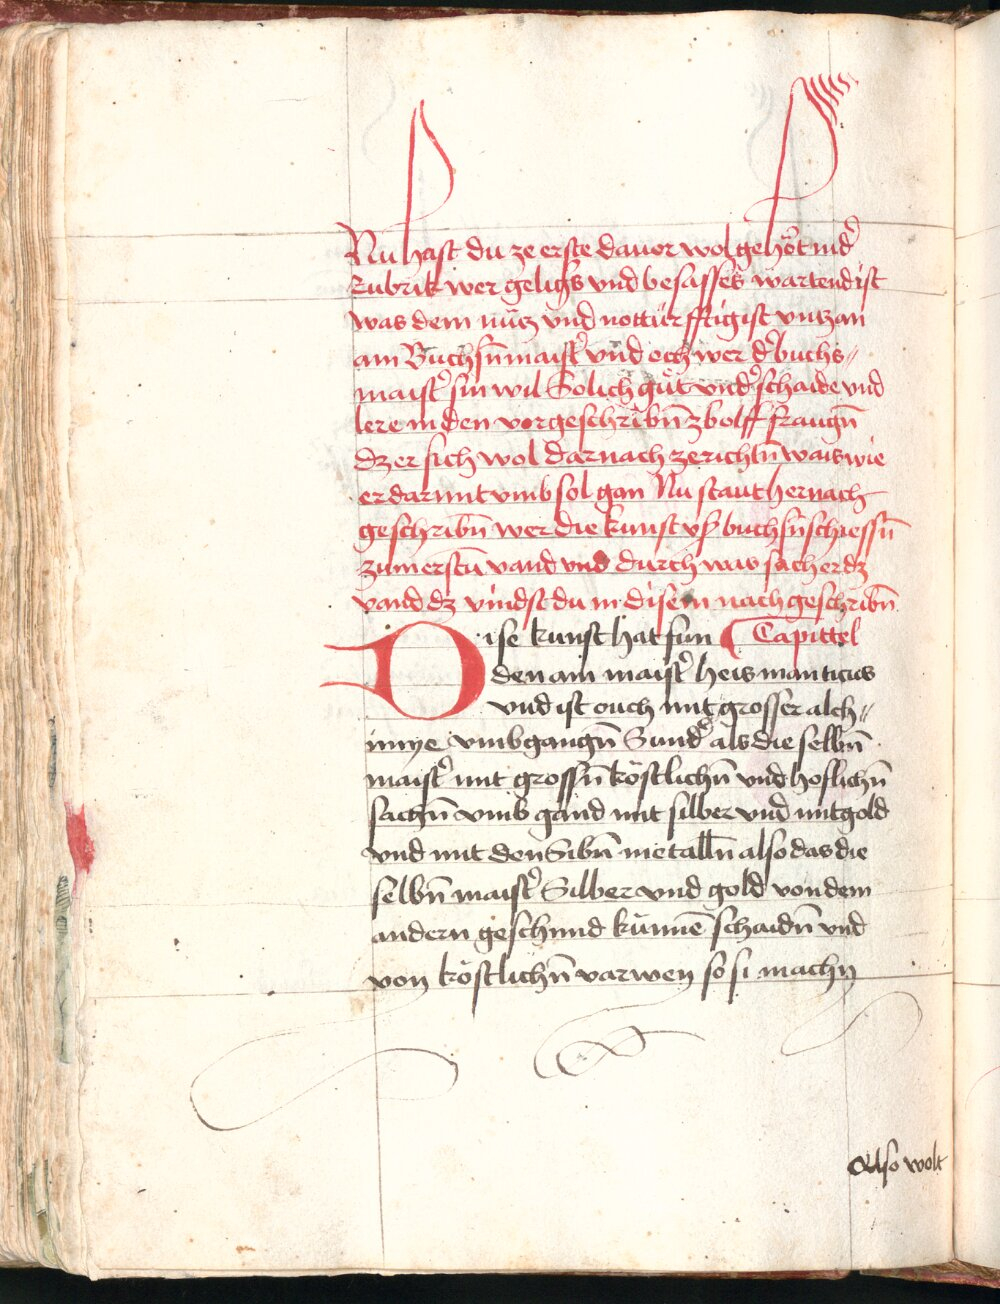 Nu hast du ze erste davor wol gehöt in d’
Rubrik wer geligs vnd besasses wartend ist
was dem nücz vnd notturfftig ist vntz an
am Buchsn̄maist’ vnd och wer d’ buchs〃
maist’ sin wil Solich gůt vnd’schaide vnd
lere in den vorgeschribn̄ zbolff fraugn̄
dz er sich wol darnach ze richtn̄ wais wie
er darmit vmb sol gan Nu staut hernach
geschribn̄ wer die kunst vß buchsn̄ schiessn̄
zum erstn̄ vand vnd durch was sach er dz
vand dz vindst du in disem nachgeschribn̄
Dise kunst hat fun Capittel
den am maist’ heis man ticius
vnd ist ouch mit grosser alch〃
imye vmbgangn̄ Sund’ als die selbn̄
maist’ mit grossn̄ köstlichn̄ vnd hoflichn̄
sachn̄ vmb gand mit silber vnd mit gold
vnd mit den Sibn̄ metalln̄ also das die
selbn̄ maist’ Silber vnd gold von dem
andern geschmid kūnnē schaidn̄ vnd
von köstlichn̄ varwen so si machn
Also wolt